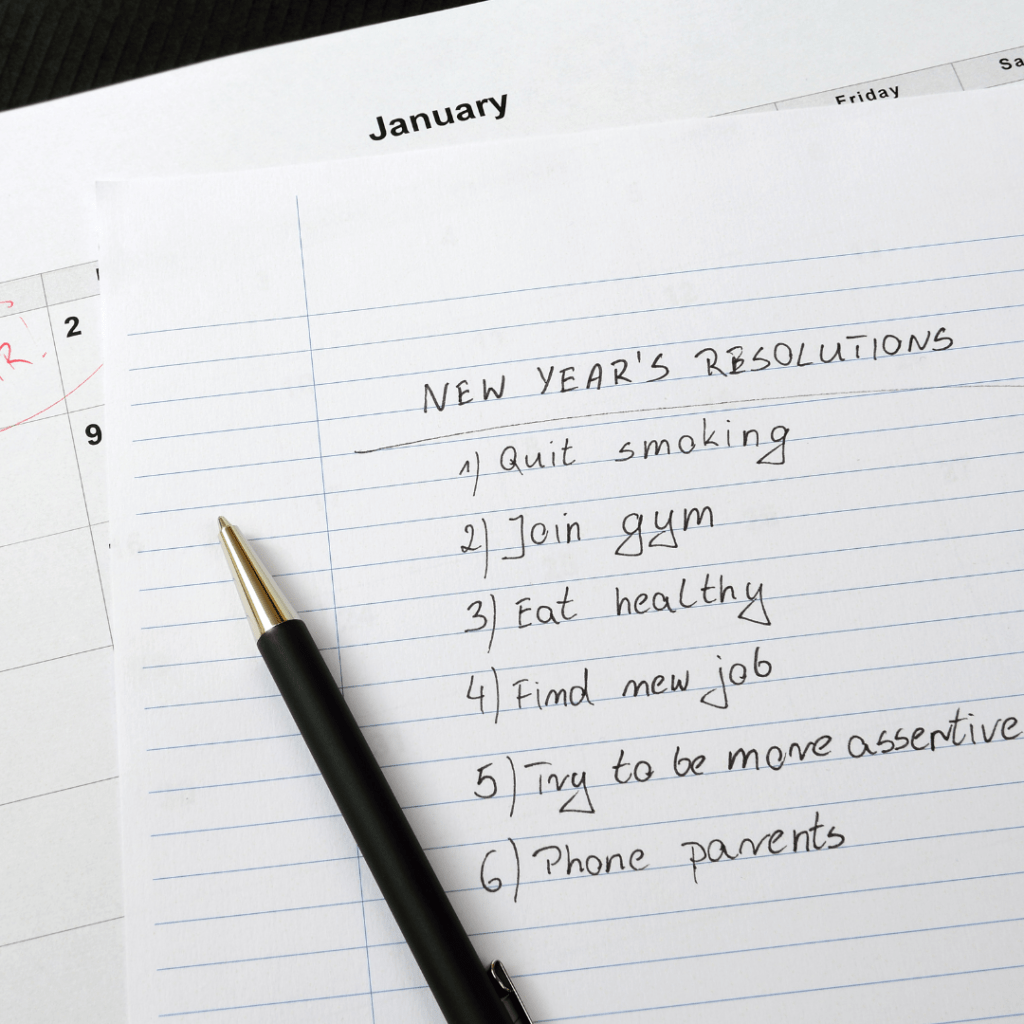 January
Friday
2
9
NEW YEAR'S RESOLUTIONS
1) Quit smoking
2) Join gym
3) Eat healthy
4) Find new job
5) Try to be more assertive
6) Phone parents